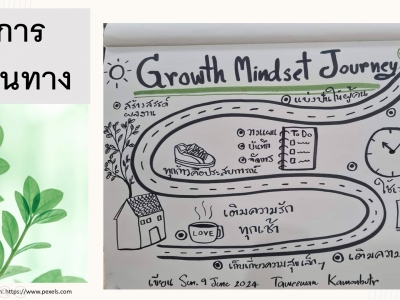 การ
นทาง
Growth Mindset Journey
แบ่งปันให้ผู้คน
สร้างสรรค์
ผลงาน
วางแผน
บันทึก
จัดการ
To Do
ทุกก้าวคือประสบการณ์
เติมความรัก
ทุกเช้า
LOVE
เก็บเกี่ยวความสุขเล็กๆ
เติมความ
เขียน Sun. 9 June 2024
https://www.pexels.com